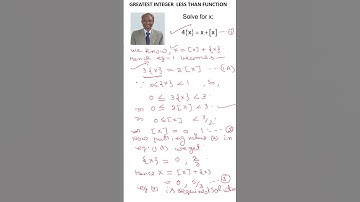 GREATEST INTEGER LESS THAN FUNCTION
Solve for x:
4{x} = x+[x] --- ①
we know, x = [x] + {x}
Hence eqn 1 becomes
3{x} = 2[x] --- (1A)
∵ 0≤{x} < 1, so,
0 ≤ 3{x} < 3
⇒ 0 ≤ 2[x] < 3
⇒ 0 ≤ [x] < 3/2
⇒ [x] = 0, 1 --- ②
Now putting value ② in
eqn (1A) we get
{x} = 0, 2/3
Hence x = [x] + {x}
= 0, 5/3 --- ③
eq ③ is required solution